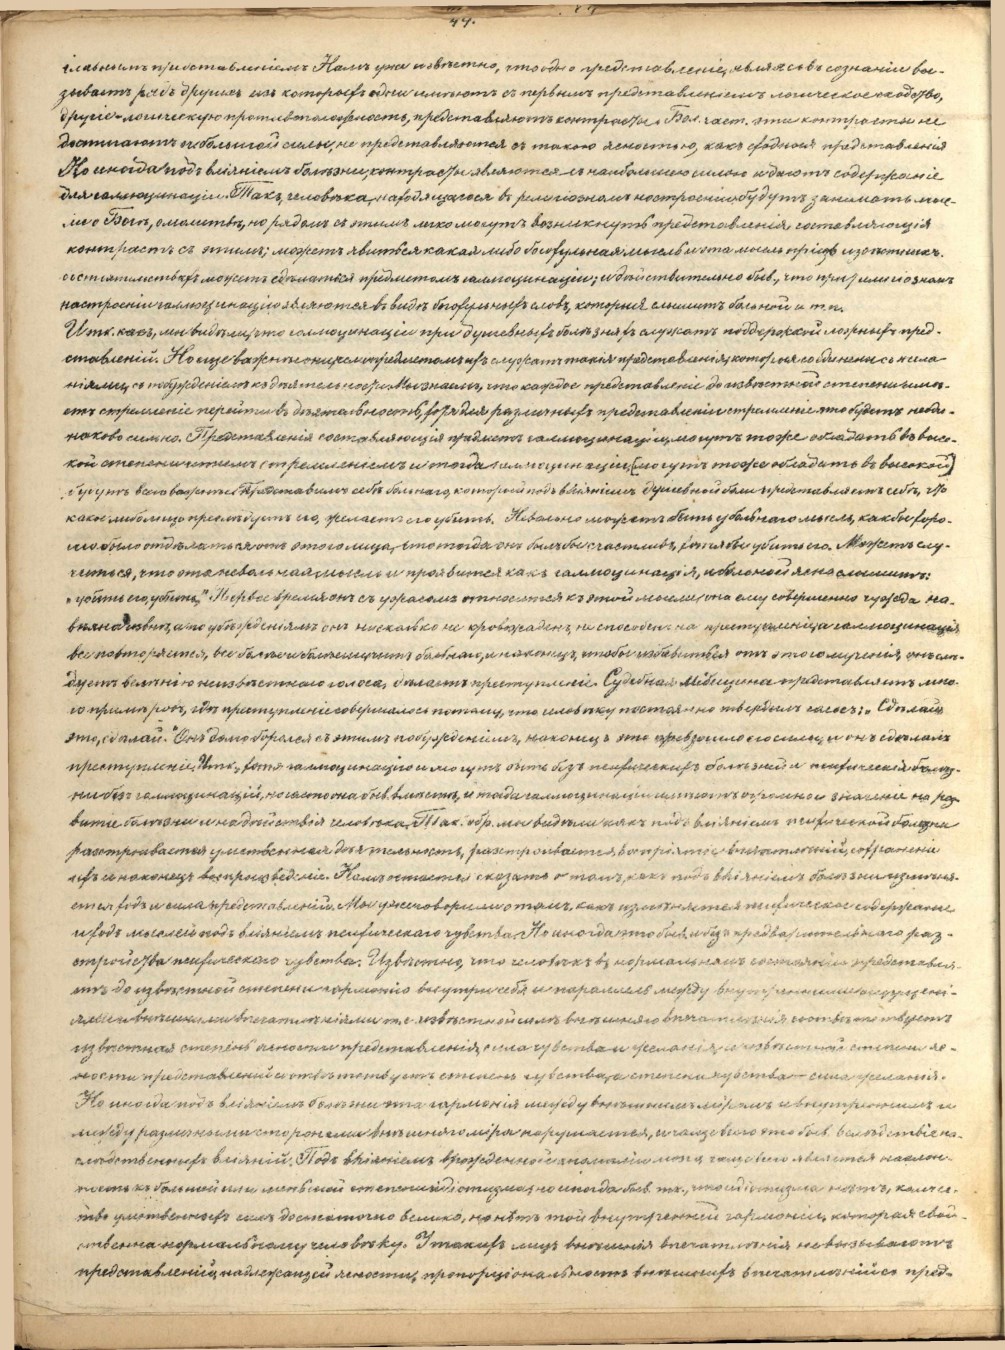 47.
главнымъ представленіемъ. Намъ уже извѣстно, что одно представленіе, являясь въ сознаніи вы-
зываетъ рядъ другихъ изъ которыхъ одни имѣютъ съ первымъ представленіемъ логическое сходство,
другіе – логическую противоположность, представляютъ контрасты. Бол. част. эти контрасты не
достигаютъ небольшой силы, не представляются съ такою ясностью, какъ сходныя представленія
Но иногда подъ вліяніемъ болѣзни, контрасты являются съ наибольшею силою и даютъ содержаніе
для галлюцинаціи. Такъ, человѣка, находящагося въ религіозномъ настроеніи будутъ занимать мыс-
ли о Богѣ, о молитвѣ, но рядомъ съ этимъ легко могутъ возникнуть представленія, составляющія
контрастъ съ этимъ; можетъ явиться какая либо богохульная мысль и эта мысль при
можетъ сдѣлаться предметомъ галлюцинаціи; и дѣйствительно быв., что при религіозномъ
настроеніи галлюцинаціи являются въ видѣ богохульныхъ словъ, которыя слышитъ больной и т. п.
Итк. касъ, мы видѣли, что галлюцинаціи при душевныхъ болѣзняхъ служатъ поддержкой ложныхъ пред-
ставленій. Но еще важнѣе они, если предметомъ ихъ служатъ такія представленія, которыя соединены съ жела-
ніями, съ побужденіемъ къ дѣятельности. Мы знаемъ, что каждое представленіе до извѣстной степени имѣ-
етъ стремленіе перейти въ дѣятельность, хотя для различныхъ представленій стремленіе это будетъ неоди-
наково сильно. Представленія составляющія предметъ галлюцинаціи, могутъ тоже обладать въ высо-
кой степени этимъ стремленіемъ и тогда галлюцинаціи [могутъ тоже обладать въ высокой]
будутъ всего важнѣе. Представимъ себѣ больнаго, который подъ вліяніемъ душевной боли представляетъ себѣ, что
какое либо лицо преслѣдуетъ его, желаетъ его убить. Невольно можетъ быть у больнаго мысль, какъ бы хоро-
шо было отдѣлаться отъ этого лица, что тогда онъ былъ бы счастливъ, хотя бы убить его. Можетъ слу-
читься, что эта невольная мысль и проявится какъ галлюцинація, и больной ясно слышитъ:
„убить его, убить". Первое время онъ съ ужасомъ относится къ этой мысли, она ему совершенно чужда на-
вязана извнѣ, а по убѣжденіямъ онъ нисколько не кровожаденъ, не способенъ на преступленіе, а галлюцинація
все повторяется, все болѣе и болѣе мучитъ больнаго, и наконецъ, чтобы избавиться отъ этого мученія, онъ слѣ-
дуетъ велѣнію неизвѣстнаго голоса, дѣлаетъ преступленіе. Судебная Медицина представляетъ мно-
го примѣровъ, гдѣ преступленіе совершалось потому, что человѣку постоянно твердилъ голосъ: „Сдѣлай
это, сдѣлай." Онъ долго боролся съ этимъ побужденіемъ, наконецъ это превзошло его силы, и онъ сдѣлалъ
преступленіе. Итк., хотя галлюцинаціи и могутъ быть безъ психическихъ болѣзней и психическія болѣз-
ни безъ галлюцинацій, но часто она быв. вмѣстѣ, и тогда галлюцинаціи имѣютъ огромное значеніе на раз-
витіе болѣзни и на дѣйствія человѣка. Так. обр. мы видѣли какъ подъ вліяніемъ психической болѣзни
разстраивается умственная дѣятельность, разстраивается воспріятіе впечатлѣній, сохраненіе
ихъ и наконецъ воспроизведеніе. Намъ остается сказать о томъ, какъ подъ вліяніемъ болѣзни измѣня-
ется ходъ и сила представленій. Мы уже говорили о томъ, какъ измѣняется психическое содержаніе
и ходъ мыслей подъ вліяніемъ психическаго чувства. Но иногда это быв. и безъ предварительнаго раз-
стройства психическаго чувства. Извѣстно, что человѣкъ въ нормальномъ состояніи представля-
етъ до извѣстной степени гармонію внутри себя и параллель между внутренними ощущені-
ями и внѣшними впечатлѣніями т. е. извѣстной силѣ внѣшняго впечатлѣнія соотвѣтствуетъ
извѣстная степень ясности представленія, сила чувства и желанія, и извѣстной степени яс-
ности представленій соотвѣтствуетъ степень чувства, а степени чувства – сила желанія.
Но иногда подъ вліяніемъ болѣзни эта гармонія между внѣшнимъ міромъ и внутреннимъ и
между разными сторонами внѣшняго міра нарушается, и чаще всего это быв. вслѣдствіе на-
слѣдственныхъ вліяній. Подъ вліяніемъ врожденной аномаліи мозга чаще всего является наклон-
ность къ большой или меньшей степени идіотизма, но иногда быв. тк., что идіотизма нѣтъ, количе-
ство умственныхъ силъ достаточно велико, но нѣтъ той внутренней гармоніи, которая свой-
ственна нормальному человѣку. У такихъ лицъ внѣшнія впечатлѣнія не вызываютъ
представленій надлежащей ясности, пропорціональность внѣшнихъ впечатлѣній съ пред-